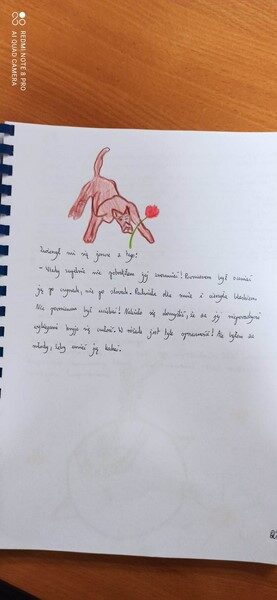 REDMI NOTE 8 PRO
AI QUAD CAMERA
Zwierzył mi się jeszcze z tego:
- Wtedy zupełnie nie potrafiłem jej zrozumieć! Powinienem był oceniać
ją po czynach, nie po słowach. Pachniała dla mnie i olśniła blaskiem.
Nie powinienem był uciekać! Należało się domyślić, że za jej niepoważnymi
wybiegami kryje się czułość. W różach jest tyle sprzeczności! Ale byłem za
młody, żeby umieć ją kochać.